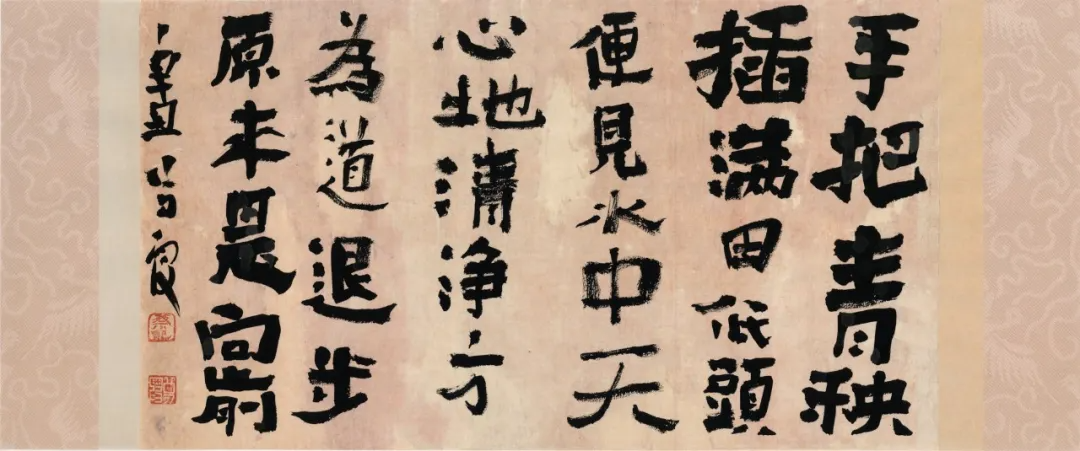 手把青秧
插满田低頭
便見水中天
心地清浄方
為道退步
原来是向前
辛丑